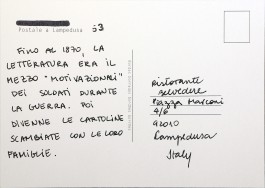 Postale a Lampedusa 53
FINO AL 1870, LA
LETTERATURA ERA IL
MEZZO "MOTIVAZIONALE"
DEI SOLDATI DURANTE
LA GUERRA. POI
DIVENNE LE CARTOLINE
SCAMBIATE CON LE LORO
FAMIGLIE.
Ristorante
Belvedere
Piazza Marconi
4/6
92010
Lampedusa
Italy